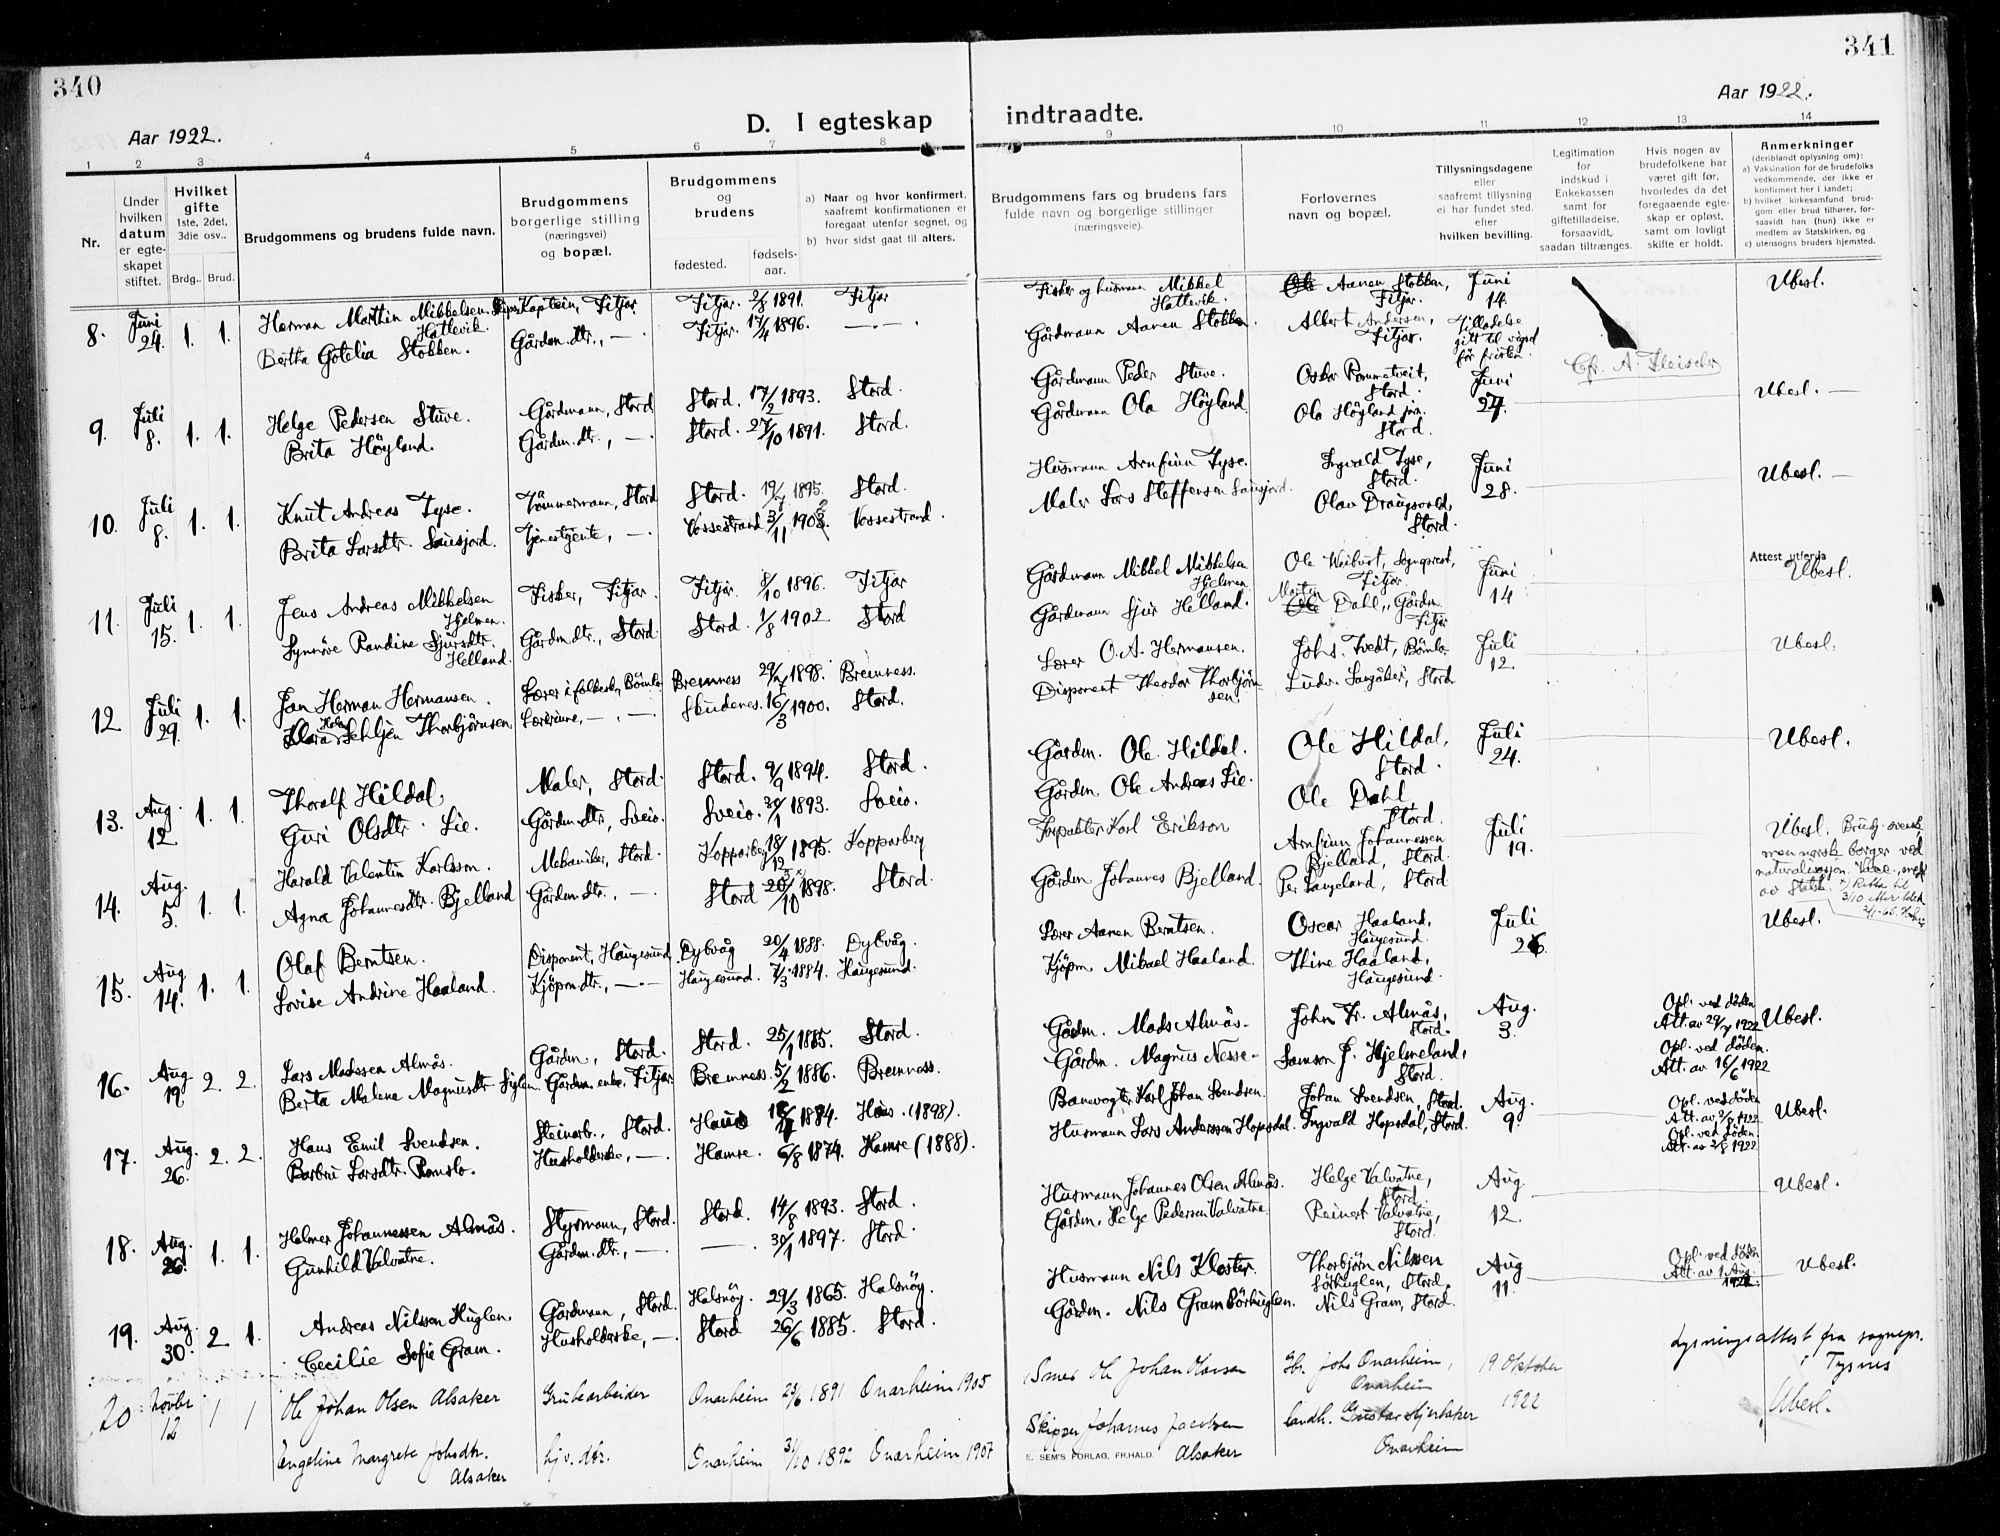 340
341
Aar 1922.
D. I egteskap indtraadte.
Aar 1922.
1 2 3 4 5 6 7 8 9 10 11 12 13 14
Nr.
Under hvilken datum er egteskapet stiftet.
Hvilket gifte 1ste, 2det, 3die osv..
Brdg.. Brud.
Brudgommens og brudens fulde navn.
Brudgommens borgerlige stilling (næringsvei) og bopæl.
Brudgommens og brudens
fødested.
fødselsaar.
a) Naar og hvor konfirmert, saafremt konfirmationen er foregaat utenfor sognet, og
b) hvor sidst gaat til alters.
Brudgommens fars og brudens fars fulde navn og borgerlige stillinger (næringsveie).
Forlovernes navn og bopæl.
Tillysningsdagene eller saafremt tillysning ei har fundet sted. efter hvilken bevilling.
Legitimation for indskud i Enkekassen samt for giftetilladelse, forsaavidt, saadan tiltrænges.
Hvis nogen av brudefolkene har været gift før, hvorledes da det foregaaende egteskap er opløst, samt om lovligt skifte er holdt.
Anmerkninger (deriblandt oplysning om):
a) Vaksination for de brudefolks vedkommende, der ikke er konfirmert her i landet;
b) hvilket kirkesamfund brudgom eller brud tilhører, forsaavidt han (hun) ikke er medlem av Statskirken, og
c) utensogns bruders hjemsted.
8. Juni 24. 1. 1. Herman Marthin Mikkelsen Hattevik. Kaptein, Fitjar Fitjar. 2/8 1891. Fitjar Fisker og husmann Mikkel Hattevik. Aanen Stokken, Fitjar. Juni 14. Ubesl.
Bertha Gotelia Stokken. Gårdm. dtr., — Fitjar. 17/4 1896. —.— Gårdmann Aanen Stokken Albert Andersen, Fitjar. Tilladelse gitt til vigsel før fristen. Cfr. A. Fleischer
9. Juli 8. 1. 1. Helge Pedersen Stuve. Gårdmann, Stord Stord. 17/2 1893. Stord. Gårdmann Peder Stuve. Oskar Rommetveit, Stord. Juni 27. Ubesl. —
Brita Høyland. Gårdm. dtr., —. Stord. 27/10 1891. Stord. Gårdmann Ola Höyland Ola Höyland jun. Stord.
10. Juli 8. 1. 1. Knut Andreas Tyse. Tömmermann, Stord Stord. 19/7 1895. Stord. Husmann Arnfinn Tyse. Ingvald Tyse, Stord. Juni 28. Ubesl. —
Brita Larsdtr. Sausjord. Tjenestjente, —. Vossestrand 3/11 1902. Vossestrand. Maler Lars Steffensen Sausjord. Olav Draugsvold, Stord.
11. Juli 15. 1. 1. Jens Andreas Mikkelsen Hjelmen. Fisker, Fitjar. Fitjar. 8/10 1896. Fitjar Gårdmann Mikkel Mikkelsen Hjelmen Ole Weibust, Sogneprest, Fitjar. Juni 14 Attest utferda Ubesl.
Synnöve Randine Sjursdtr. Helland. Gårdm. dtr., Stord. Stord. 1/8 1902 Stord Gårdmann Sjur Helland. Martin Dahl, Gårdm. Fitjar
12 Juli 29. 1. 1. Jan Herman Hermansen. Lærer i folkesk., Bömlo Bremness 29/7 1898. Bremness. Lærer O. A. Hermansen. Johs. Tvedt, Bömlo. Juli 12. Ubesl.
Klara Thorbjørnsen Lærerinne, —.— Skudenes. 16/3 1900. Stord. Disponent Theodor Thorbjörnsen. Ludv. Langåker, Stord
13. Aug. 12 1. 1. Thoralf Hildal. Maler, Stord. Stord. 9/9 1894. Stord. Gårdm. Ole Hildal. Ole Hildal, Stord. Juli 24. Ubesl.
Guri Olsdtr. Lie. Gårdm. dtr., Sveio. Sveio. 30/1 1893. Sveio. Gårdm. Ole Andreas Lie. Ole Dahl, Stord.
14. Aug. 5. 1. 1. Harald Valentin Karlsson. Mekaniker, Stord. Kopparberg 18/12 1895. Kopparberg Forpakter Karl Erikson Arnfinn Johannessen Bjelland, Stord. Juli 19. Ubesl. Brudg. svensk, men norsk borger ved naturalisasjon.
Agna Johannesdtr. Bjelland Gårdm. dtr., —. Stord 20/10 1898. Stord. Gårdm Johannes Bjelland. Per Langeland, Stord
15. Aug 14. 1. 1. Olaf Berntsen. Disponent, Haugesund. Dybvåg 20/4 1888. Dybvåg. Lærer Aanen Berntsen. Oscar Haaland, Haugesund. Juli 26. Ubesl.
Lovise Andrine Haaland. Kjöpm. dtr., —.— Haugesund. 7/3 1884. Haugesund. Kjöpm. Mikael Haaland. Stine Haaland, Haugesund.
16. Aug. 19. 2. 2. Lars Madssen Almås. Gårdm., Stord. Stord. 25/1 1885. Stord. Gårdm. Mads Almås. John Fr. Almås, Stord. Aug. 3. Opl. ved døden Att. av 29/7 1922 Ubesl.
Berta Malene Magnusdtr Gårdm. enke, Fitjar. Bremness. 5/2 1886. Bremness. Gårdm. Magnus Nesse Samson J. Hjelmeland, Stord. Opl. ved døden. Att. av 16/6 1922
17. Aug. 26. 2. 2. Hans Emil Svendsen. Steinarb., Stord. Haus 1884. Haus. (1898). Banevogter Karl Johan Svendsen. Johan Svendsen, Stord. Aug. 9. Opl. ved døden Att. av 2/8 1922 Ubesl.
Barbru Larsdtr. Romslo. Husholderske, —. Hamre. 6/8 1874. Hamre (1888). Husmann Lars Anderssen Hopsdal. Ingvald Hopsdal, Stord. Opl. ved døden. Att. av 2/8 1922
18. Aug. 26. 1. 1. Helmer Johannessen Almås. Styrmann, Stord. Stord. 14/8 1893. Stord. Husmann Johannes Olsen Almås. Helge Valvatne, Stord. Aug. 12. Ubesl.
Gunhild Valvatne. Gårdm. dtr., —. —.— 30/1 1897. Stord. Gårdm. Helge Pedersen Valvatne. Reinert Valvatne, Stord.
19. Aug. 30. 2. 1. Andreas Nilssen Huglen. Gårdmann, Stord. Halsnöy. 29/3 1865. Halsnöy. Husmann Nils Kloster. Thorbjörn Nilssen Sörhuglen, Stord. Aug 11. Opl. ved døden Att. av 1 Aug. 1922. Ubesl.
Cecilie Sofie Gram. Husholderske, —. Stord 26/6 1885. Stord. Gårdm. Nils Gram Sörhuglen. Nils Gram, Stord.
20 Novbr 12 1 1 Ole Johan Olsen Alsaker Grubearbeider Onarheim 1891 Onarheim 1905 Ole Johan Olavsen Johs Onarheim, Onarheim 19 Oktober 1922 Lysningsattest fra sognepr. i Tysnes Ubesl.
Engeline Margrete Johsdtr. Alsaker Onarheim 31/10 1892 Onarheim 1907 Skipper Johannes Jacobsen Alsaker landh. Gustav Onarheim
E. SEM'S FORLAG. FR.HALD.